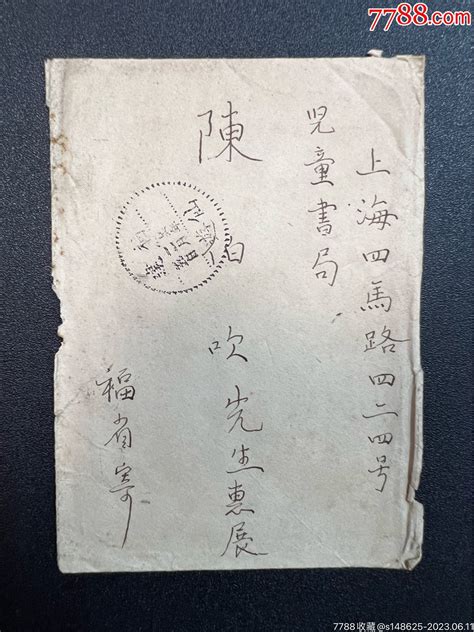 7788.com
上海四馬路四二四号
児童書局
陳伯吹先生惠展
福省寄
7788收藏@s148625-2023.06.11